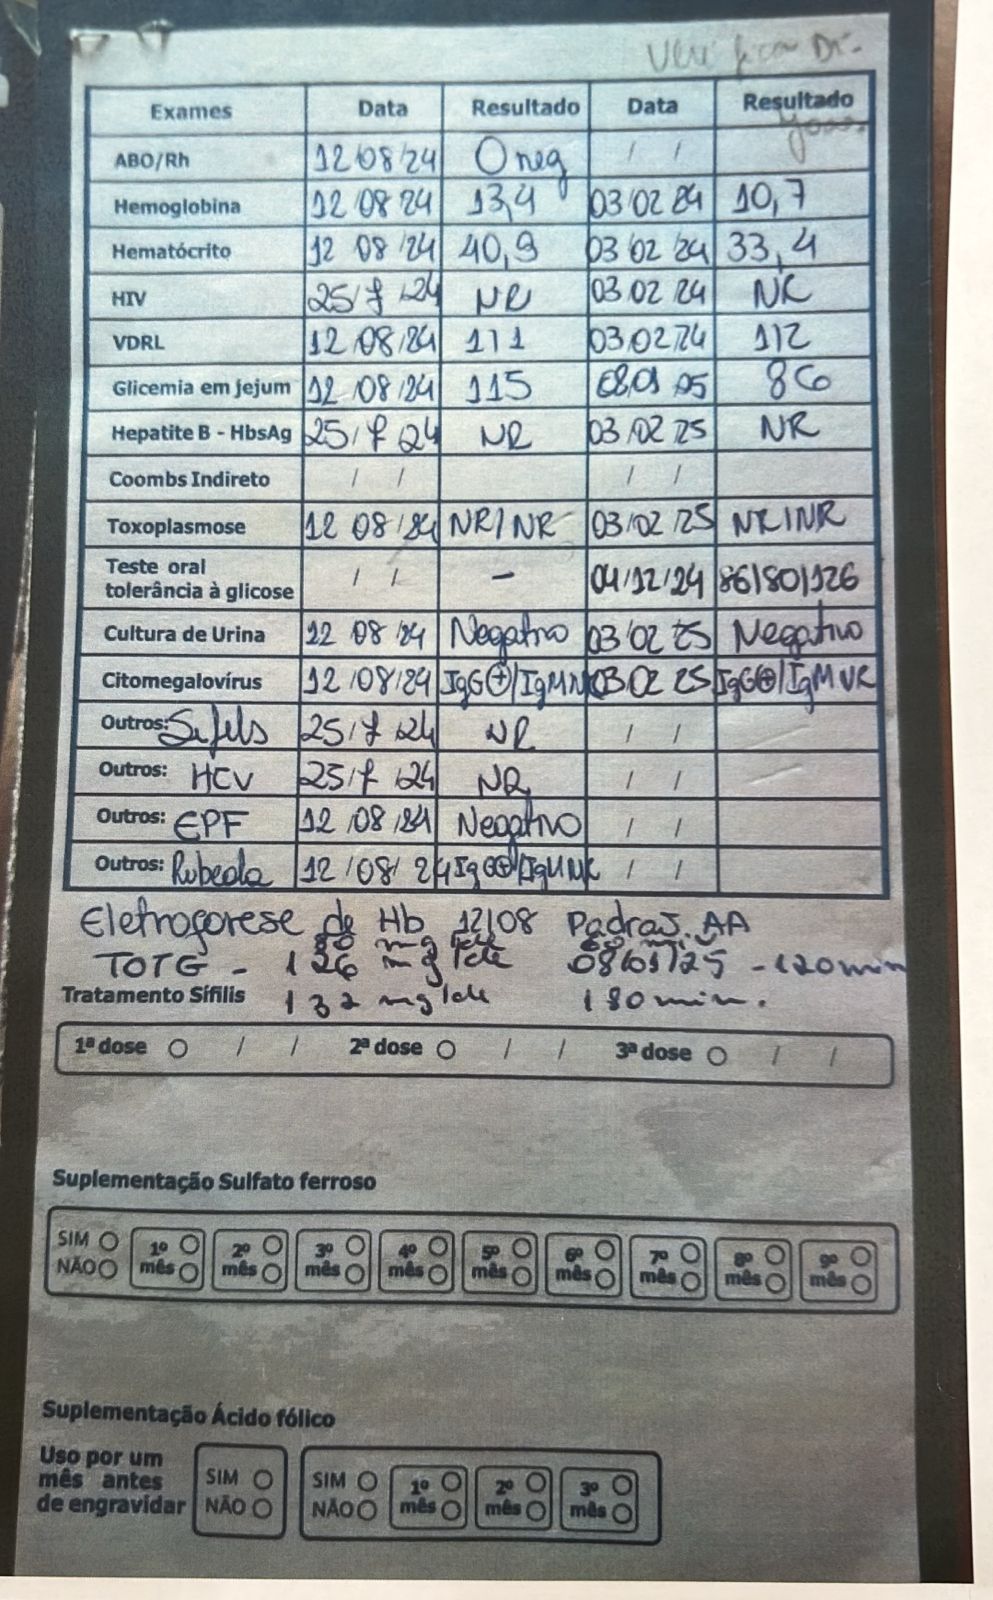 Dr.
Exames Data Resultado Data Resultado
ABO/Rh 12/08/24 O neg / /
Hemoglobina 12 08 24 13,4 03/02 24 10,7
Hematócrito 12 08 24 40,9 03 02 24 33,4
HIV 25/7/24 NR 03 02 24 NR
VDRL 12/08/24 1/1 03/02/24 1/2
Glicemia em jejum 12/08/24 115 08/01 25 86
Hepatite B - HbsAg 25/7 24 NR 03/02 25 NR
Coombs Indireto / / / /
Toxoplasmose 12 08/24 NR/NR 03/02/25 NR/NR
Teste oral
tolerância à glicose / / - 04/12/24 86/80/126
Cultura de Urina 12 08/24 Negativo 03/02 25 Negativo
Citomegalovírus 12/08/24 IgG⊕/IgM NR 03 02 25 IgG⊕/IgM NR
Outros: Sífilis 25/7/24 NR / /
Outros: HCV 25/7/24 NR / /
Outros: EPF 12/08/24 Negativo / /
Outros: Rubeola 12/08/24 IgG⊕/IgM NR / /
Eletroforese de Hb 12/08 Padrão AA
TOTG - 126 mg/dl 08/01/25 - 120 min
Tratamento Sífilis 132 mg/dl 180 min.
1ª dose / / 2ª dose / / 3ª dose / /
Suplementação Sulfato ferroso
SIM 1º 2º 3º 4º 5º 6º 7º 8º 9º
NÃO mês mês mês mês mês mês mês mês mês
Suplementação Ácido fólico
Uso por um
mês antes SIM SIM 1º 2º 3º
de engravidar NÃO NÃO mês mês mês